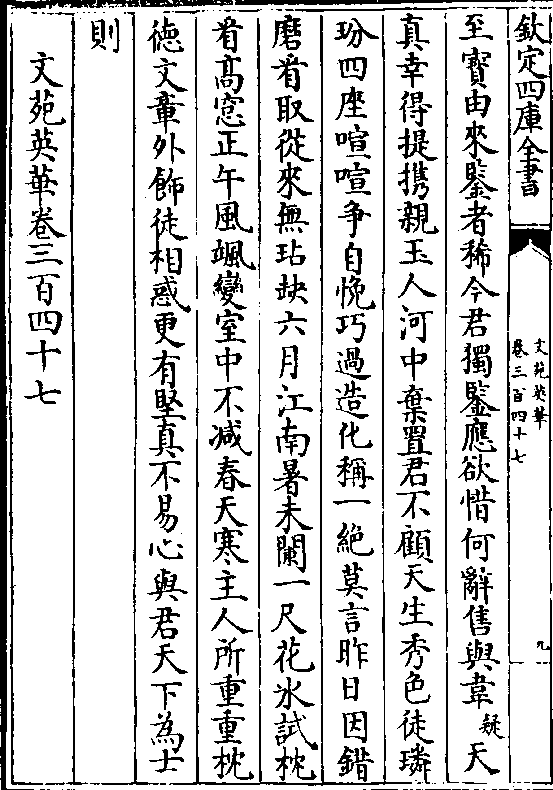 欽定四庫全書
文苑英華
卷三百四十七
九
至寶由來鑒者稀今君獨鑒應欲惜何辭售與韋疑天
真幸得提攜親玉人河中棄置君不顧天生秀色徒璘
玢四座喧喧争自悅巧過造化稱一絶莫言昨日因錯
磨看取從來無玷缺六月江南暑未闌一尺花氷試枕
看髙窓正午風颯變室中不減春天寒主人所重重枕
徳文章外飾徒相惑更有堅真不易心與君天下為士
則
文苑英華卷三百四十七